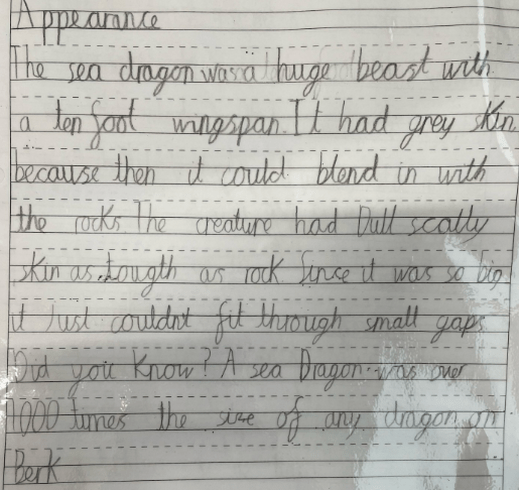 Appearance
The sea dragon was a huge beast with
a ten foot wingspan. It had grey skin
because then it could blend in with
the rocks. The creature had Dull scally
skin as tougth as rock. Sinse it was so big,
it Just couldnt fit through small gaps
Did you Know? A sea Dragon was over
1000 times the size of any dragon on
Berk